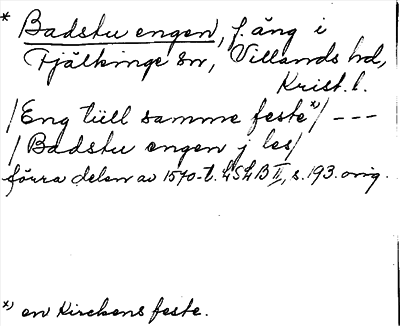 * Badstu engen, f. äng i
Fjälkinge sn, Villands hd,
Krist. l.
/Eng tiill samme feste*)/ ---
/Badstu engen j les/
förra delen av 1570-t. LSLB II, s. 193. orig.
*) en Kirckens feste.